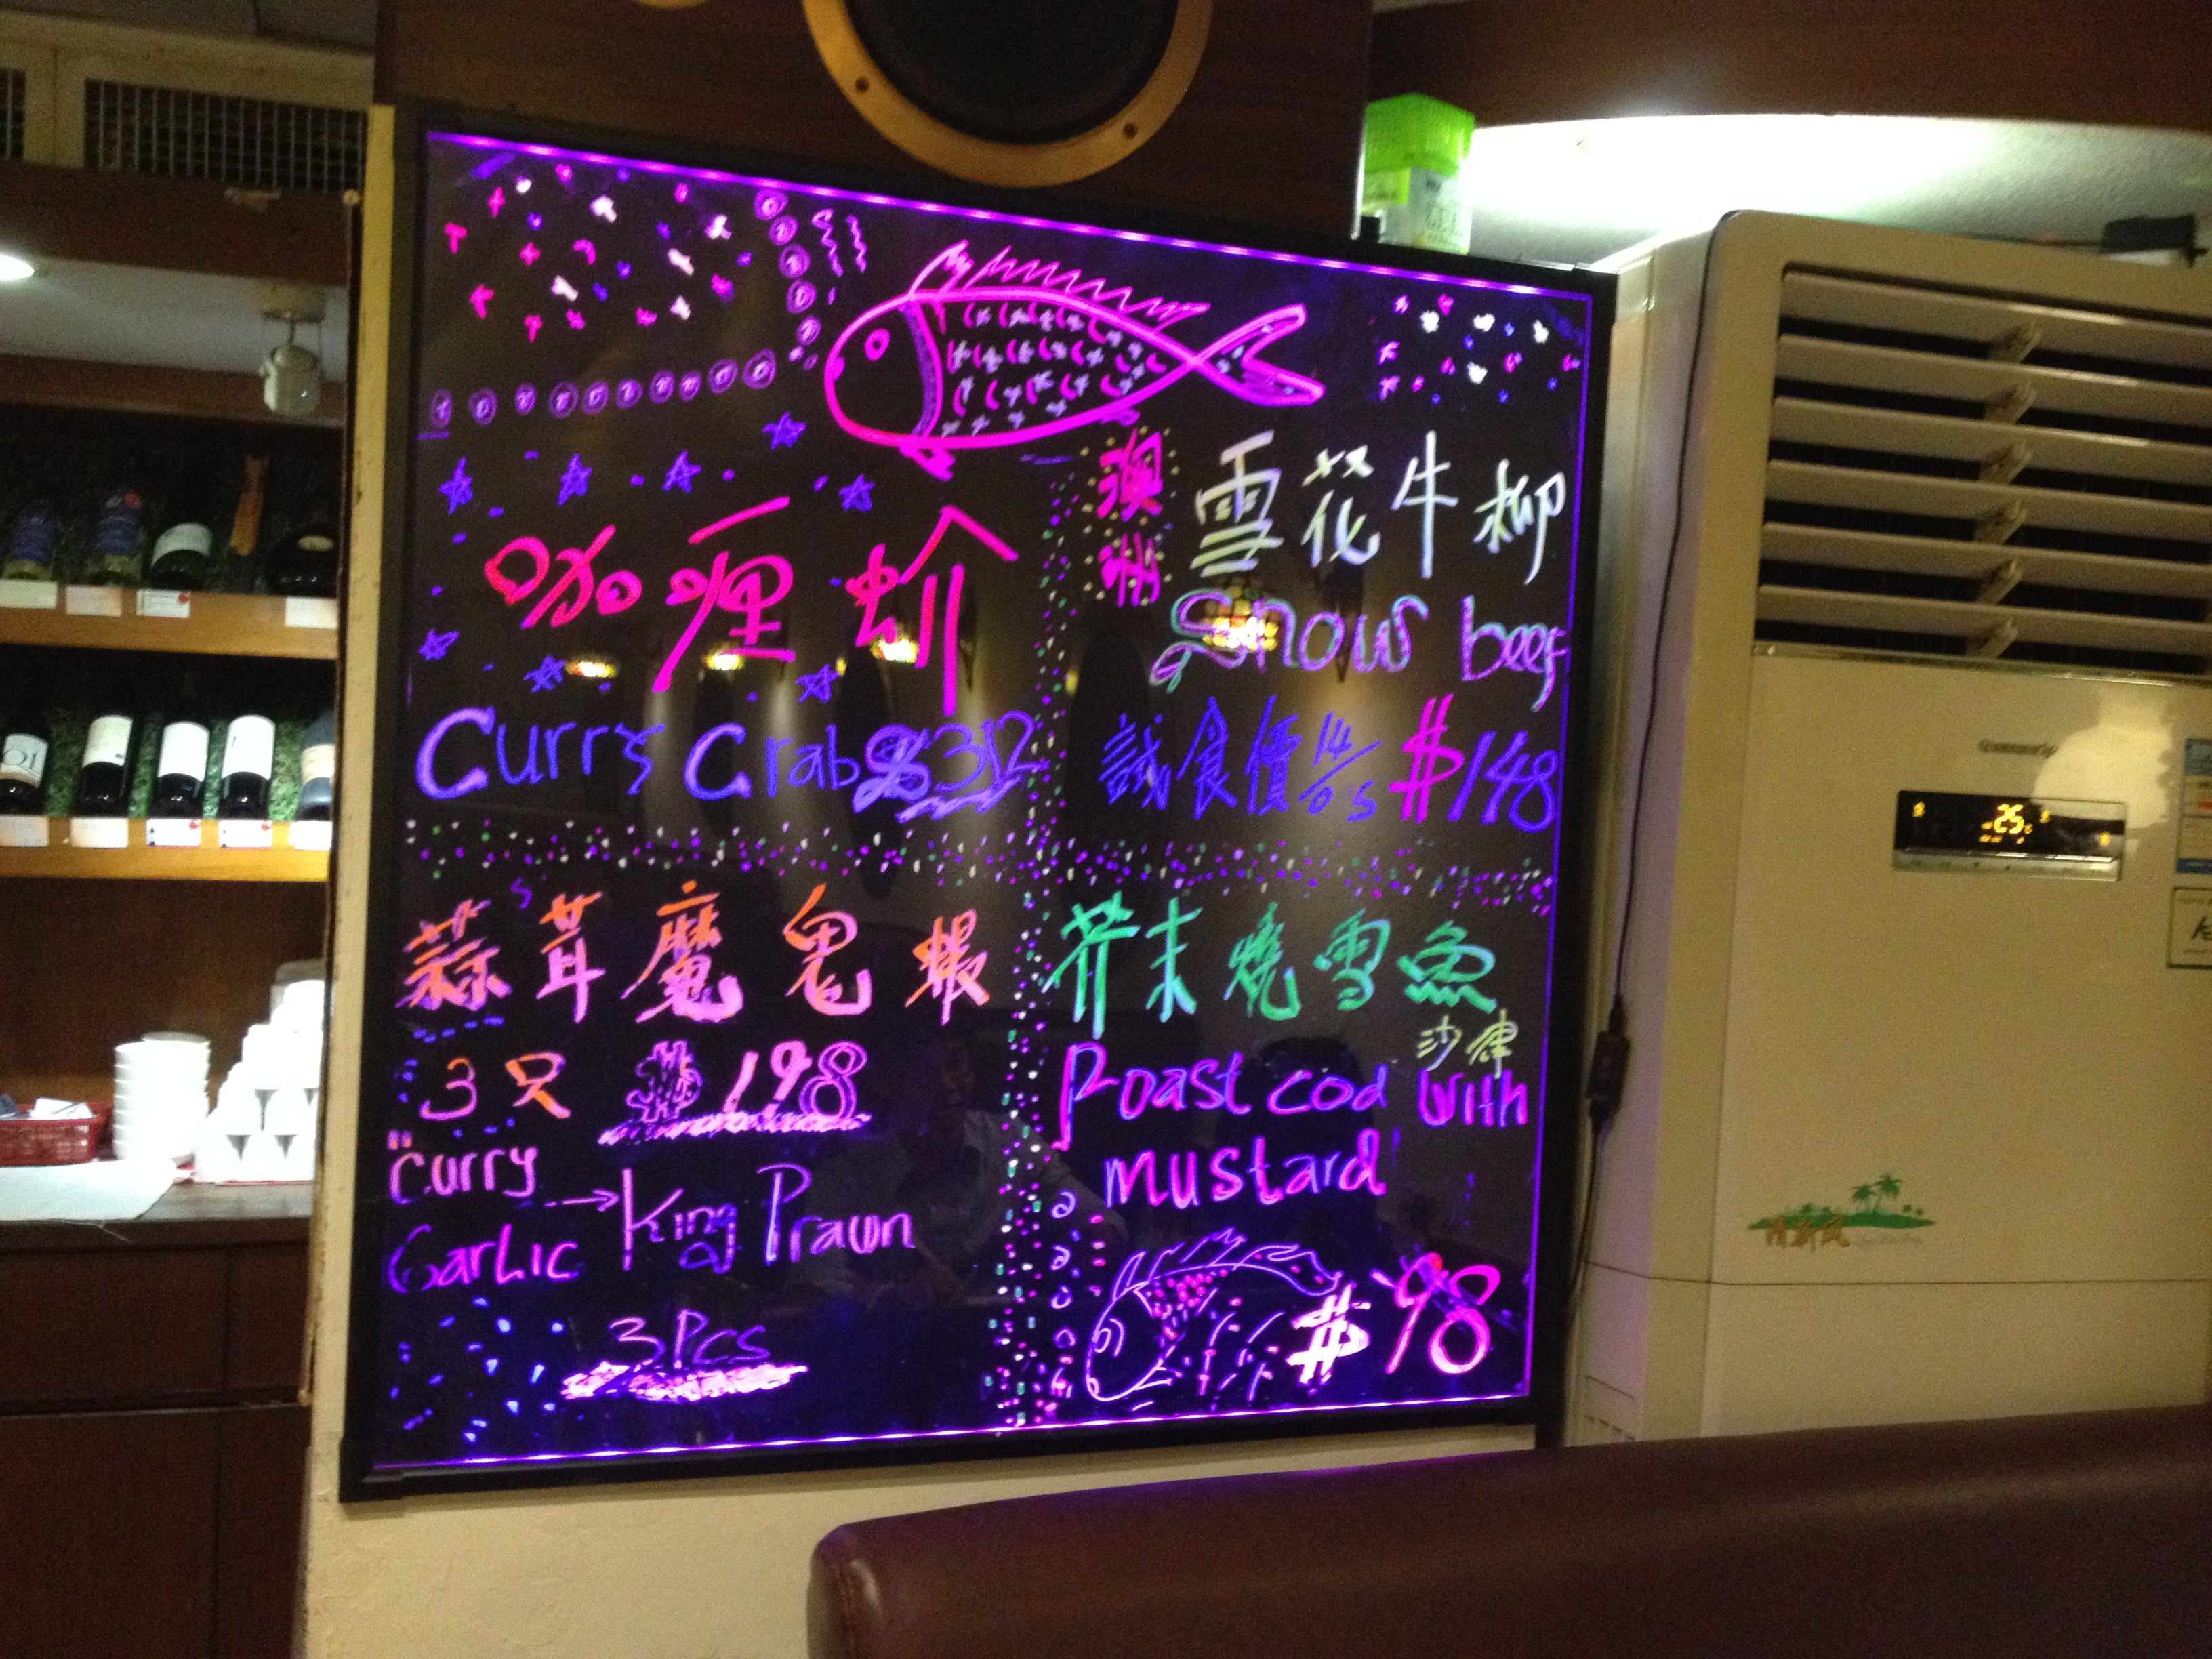 咖喱蚧
Curry Crab $312
澳洲
雪花牛柳
Snow beef
試食價 14/05 $148
蒜茸魔鬼蝦
3只 $198
Curry
Garlic → King Prawn
3 Pcs
芥末燒雪魚
沙律
Roast cod with
mustard
$98
25